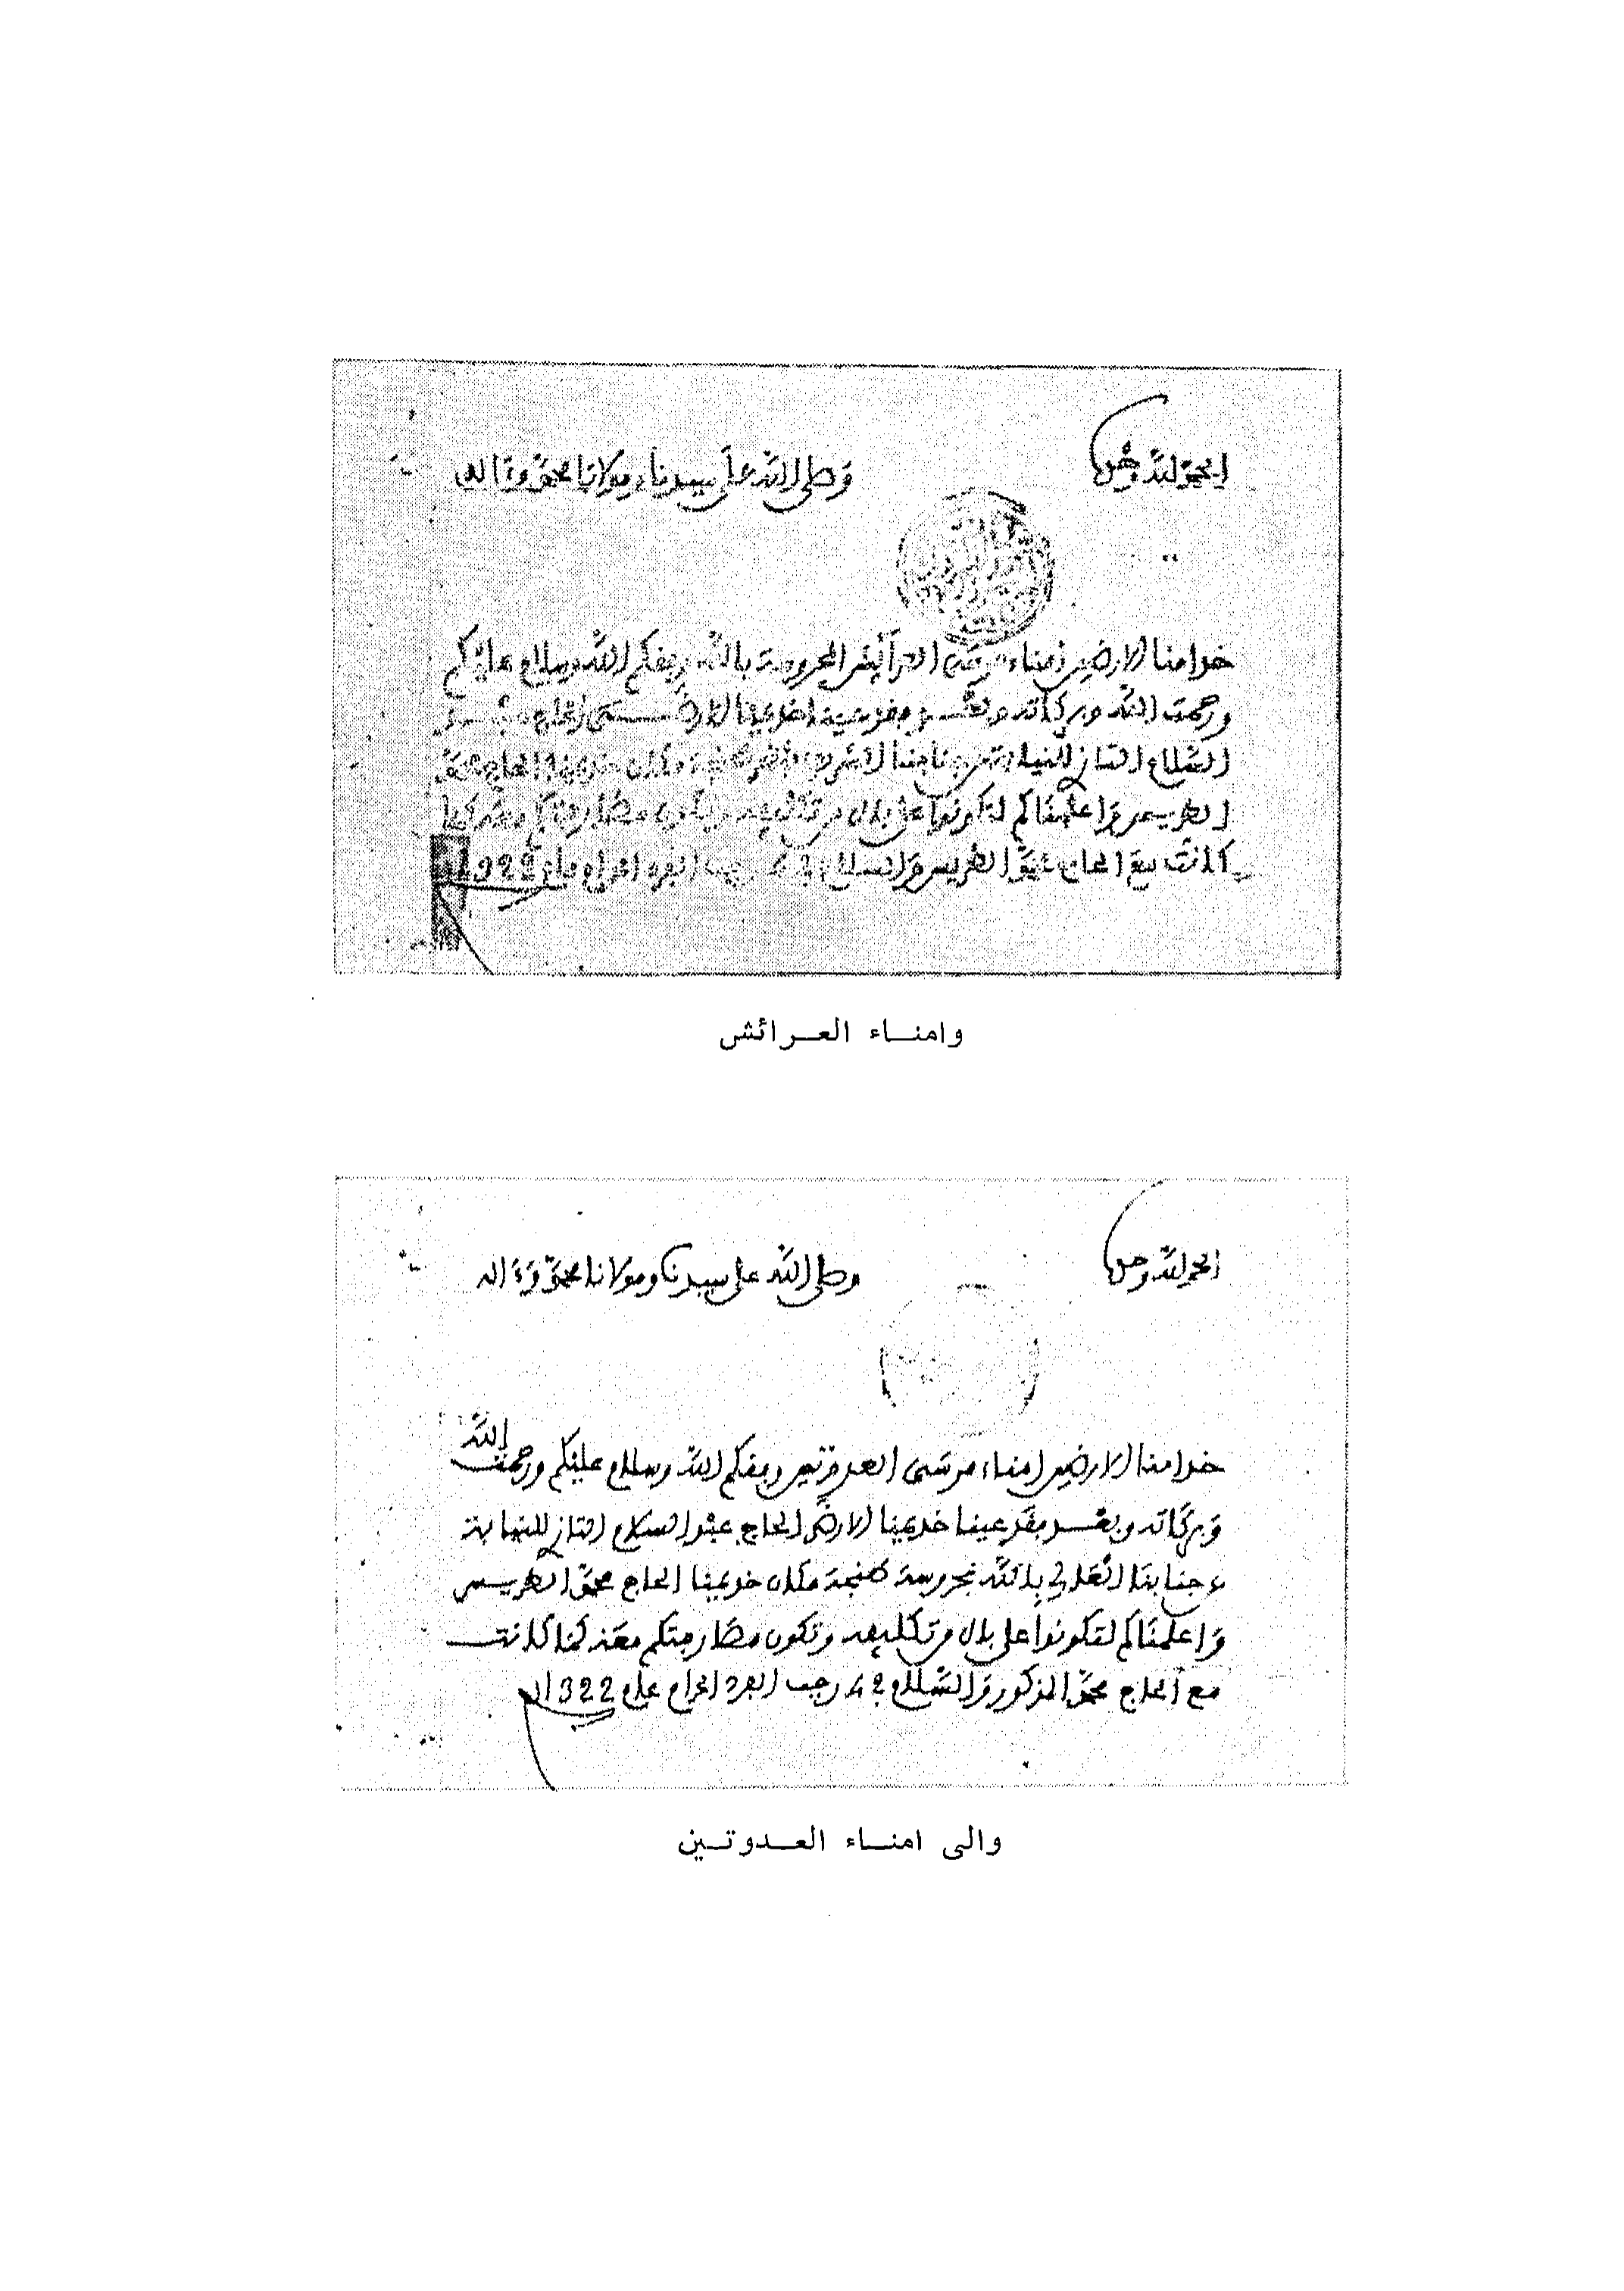 الحمد لله وحده
وصلى الله على سيدنا ومولانا محمد وءاله
خدامنا الارضين امناء مرسى العرائش المحروسة بالله وفقكم الله وسلام عليكم
ورحمت الله وبركاته وبعد فقد عينا خديمنا الارضى الحاج عبد
السلام التازي للنيابة عن جنابنا الشريف بطنجة مكان خديمنا الحاج محمد
الطريس واعلمناكم لتكونوا على بال من تكليفه وتكون مخابرتكم معه كما
كانت مع الحاج محمد الطريس والسلام في 24 رجب الفرد الحرام عام 1322
وامناء العرائش
الحمد لله وحده
وصلى الله على سيدنا ومولانا محمد وءاله
خدامنا الارضين امناء مرسى العدوتين وفقكم الله وسلام عليكم ورحمت الله
وبركاته وبعد فقد عينا خديمنا الارضى الحاج عبد السلام التازي للنيابة
عن جنابنا العالي بالله بمحروسة طنجة مكان خديمنا الحاج محمد الطريس
واعلمناكم لتكونوا على بال من تكليفه وتكون مخابرتكم معه كما كانت
مع الحاج محمد المذكور والسلام في 24 رجب الفرد الحرام عام 1322
والى امناء العدوتين